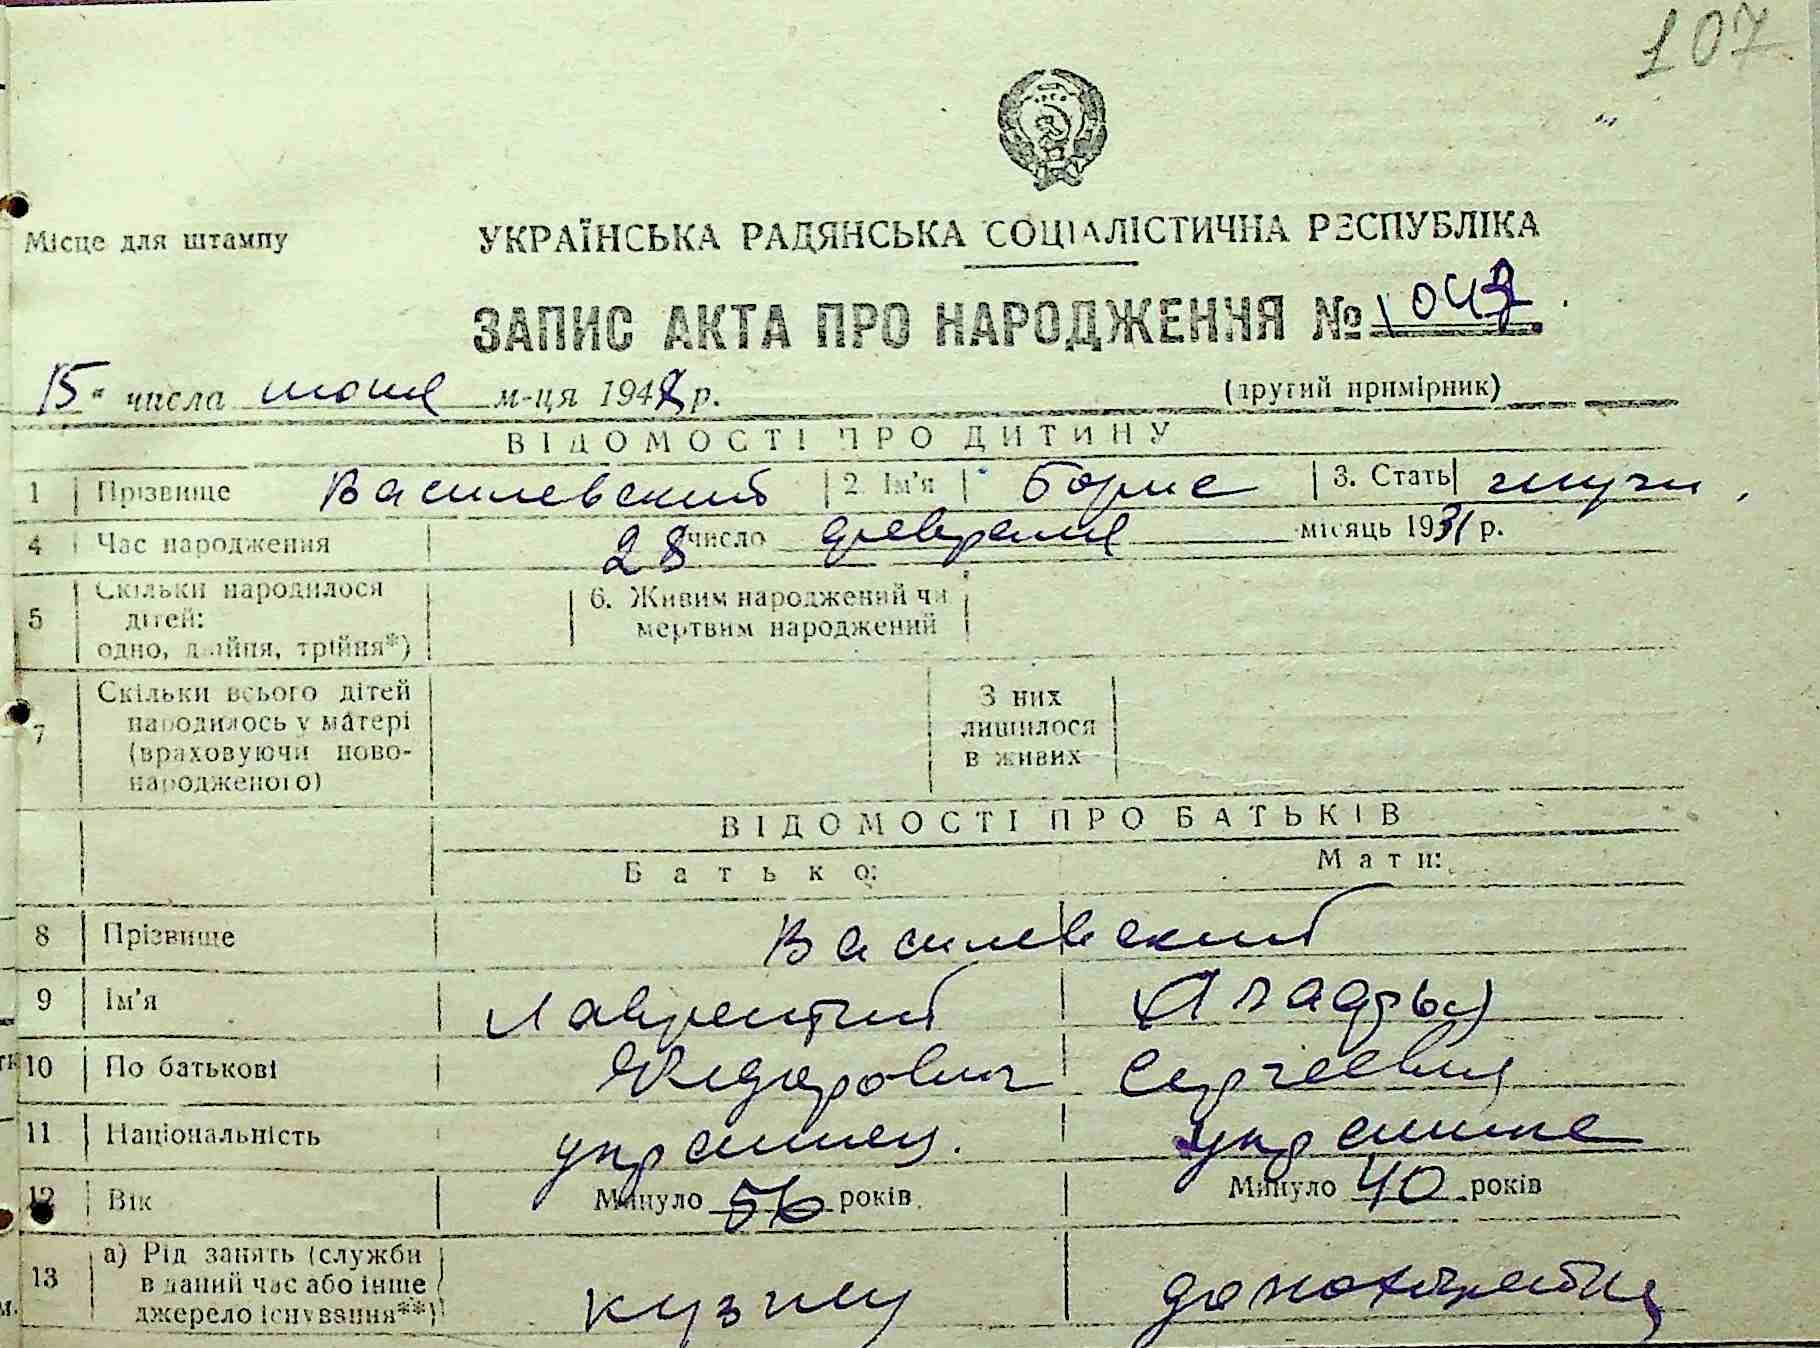 107
Місце для штампу
УКРАЇНСЬКА РАДЯНСЬКА СОЦІАЛІСТИЧНА РЕСПУБЛІКА
ЗАПИС АКТА ПРО НАРОДЖЕННЯ № 1047
15 " числа июня м-ця 1948 р. (другий примірник)
ВІДОМОСТІ ПРО ДИТИНУ
1 Прізвище Василевский 2. Ім'я Борис 3. Стать мужч.
4 Час народження 28 число февраля місяць 1931 р.
5 Скільки народилося дітей: одно, двійня, трійня*) 6. Живим народжений чи мертвим народжений
7 Скільки всього дітей народилось у матері (враховуючи новонародженого) З них лишилося в живих
ВІДОМОСТІ ПРО БАТЬКІВ
Батько: Мати:
8 Прізвище Василевский
9 Ім'я Лаврентий
10 По батькові Федорович Сергеевна
11 Національність украинец. украинка
12 Вік Минуло 56 років Минуло 40 років
13 а) Рід занять (служби в даний час або інше джерело існування**) кузнец домохозяйка